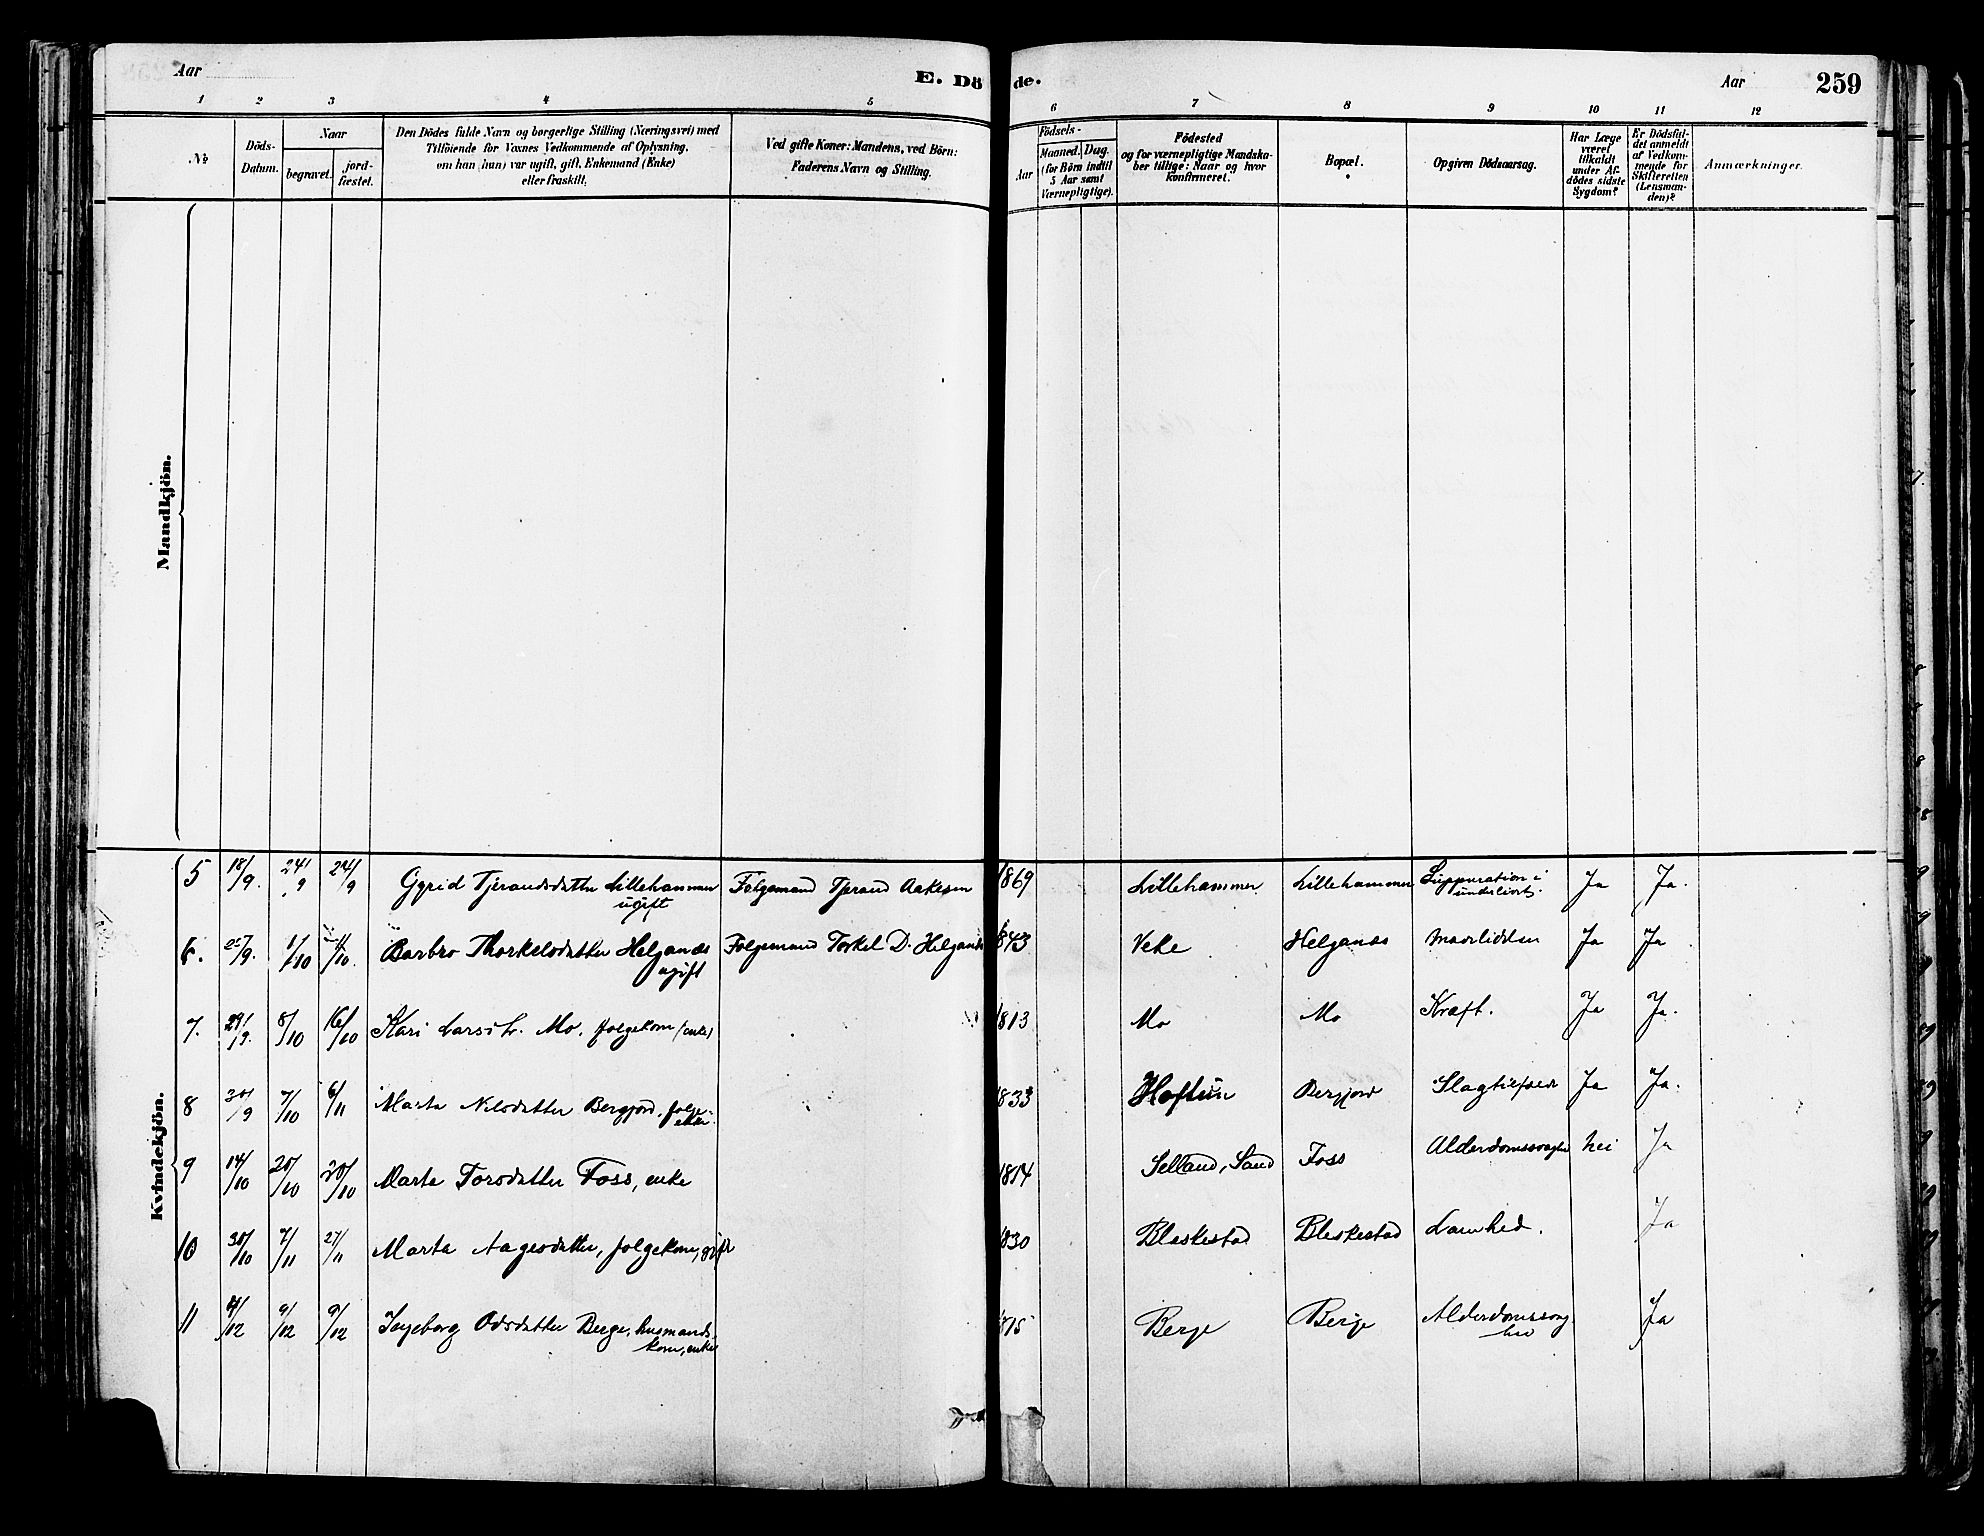 Aar
E. Döde.
Aar
259
1 2 3 4 5 6 7 8 9 10 11 12
No
Döds-Datum.
Naar
begravet.
jord-fæstet.
Den Dödes fulde Navn og borgerlige Stilling (Næringsvei) med
Tilföiende for Voxnes Vedkommende af Oplysning,
om han (hun) var ugift, gift, Enkemand (Enke)
eller fraskilt.
Ved gifte Koner: Mandens, ved Börn:
Faderens Navn og Stilling.
Födsels-
Aar
Maaned. Dag.
(for Börn indtil
5 Aar samt
Værnepligtige).
Födested
og for værnepligtige Mandska-
ber tillige: Naar og hvor
konfirmeret.
Bopæl.
Opgiven Dödsaarsag.
Har Læge
været
tilkaldt
under Af-
dödes sidste
Sygdom?
Er Dödsfal-
det anmeldt
af Vedkom-
mende for
Skifteretten
(Lensman-
den)?
Anmærkninger.
Mandkjön.
Kvindekjön.
5 18/9. 24/9 24/9 Gyrid Tjerandsdatter Lillehammer Folgemand Tjerand Aakesen 1869 Lillehammer Lillehammer Suppuration i Ja Ja.
ugift underlivet.
6. 27/9. 1/10 11/10. Barbro Thorkelsdatter Helganæs Folgemand Torkel D. Helganæs 1843 Veke Helganæs Ja Ja
ugift
7. 29/9. 8/10 16/10 Kari Larsdtr. Mo. folgekone (enke) 1813 Mo Mo Kræft. Ja Ja.
8 30/9 7/10 6/11 Marta Nilsdatter Bergjord, folge- 1833 Haftun Bergjord Ja Ja.
enke.
9 14/10 20/10 20/10 Marta Torsdatter Foss, enke 1814 Selland, Sand Foss Alderdomssvaghed nei Ja
10 30/10 7/11 27/11 Marta Aagesdatter, folgekone, gift 1830 Bleskestad Bleskestad Lamhed. Ja
11 4/12 9/12 9/12 Ingeborg Odsdatter Berge, husmands- Berge Berge Alderdomssvag Ja
kone, enke hed